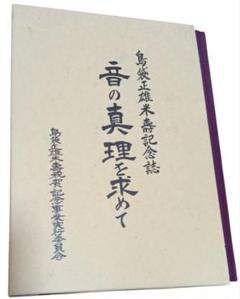 島袋正雄米壽記念誌
音の真理を求めて
島袋正雄米壽祝賀記念事業実行委員会